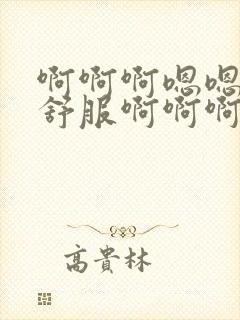 啊啊啊嗯嗯
舒服啊啊啊
高貴林